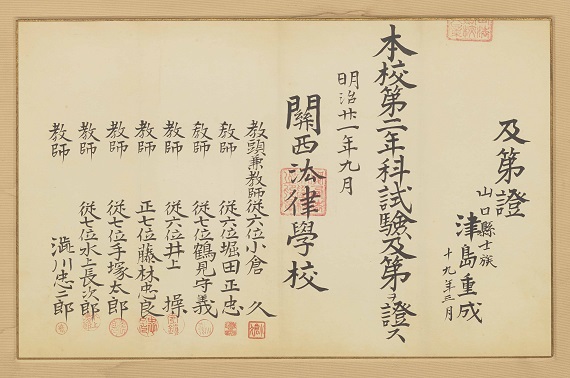 及第證
山口縣士族
津島重成
十九年三月
本校第二年科試驗及第ヲ證ス
明治廿一年九月
關西法律學校
教頭兼教師從六位小倉久
教師 從六位堀田正忠
教師 從七位鶴見守義
教師 從六位井上操
教師 正七位藤林忠良
教師 從七位手塚太郎
教師 從七位水上長次郎
教師 澁川忠二郎